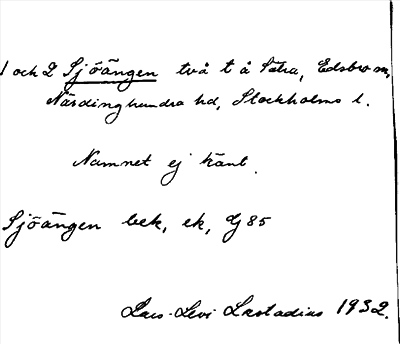 1 och 2 Sjöängen två t å Sätra, Edsbro sn,
Närdinghundra hd, Stockholms l.
Namnet ej känt.
Sjöängen bek, ek, Gj 85
Lars-Levi Læstadius 1932.